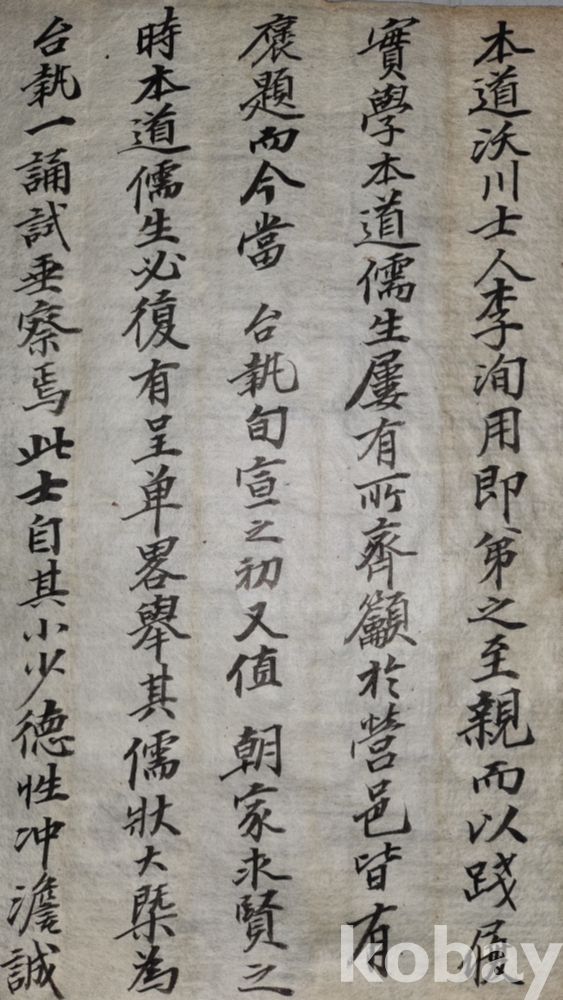 本道沃川士人李洵用即第之至親而以踐履
實學本道儒生屢有所齊籲於營邑皆有
褒題而今當 台執旬宣之初又值 朝家求賢之
時本道儒生必復有呈单畧舉其儒狀大槩為
台執一誦試垂察焉此士自其小少德性冲澹誠
kobay